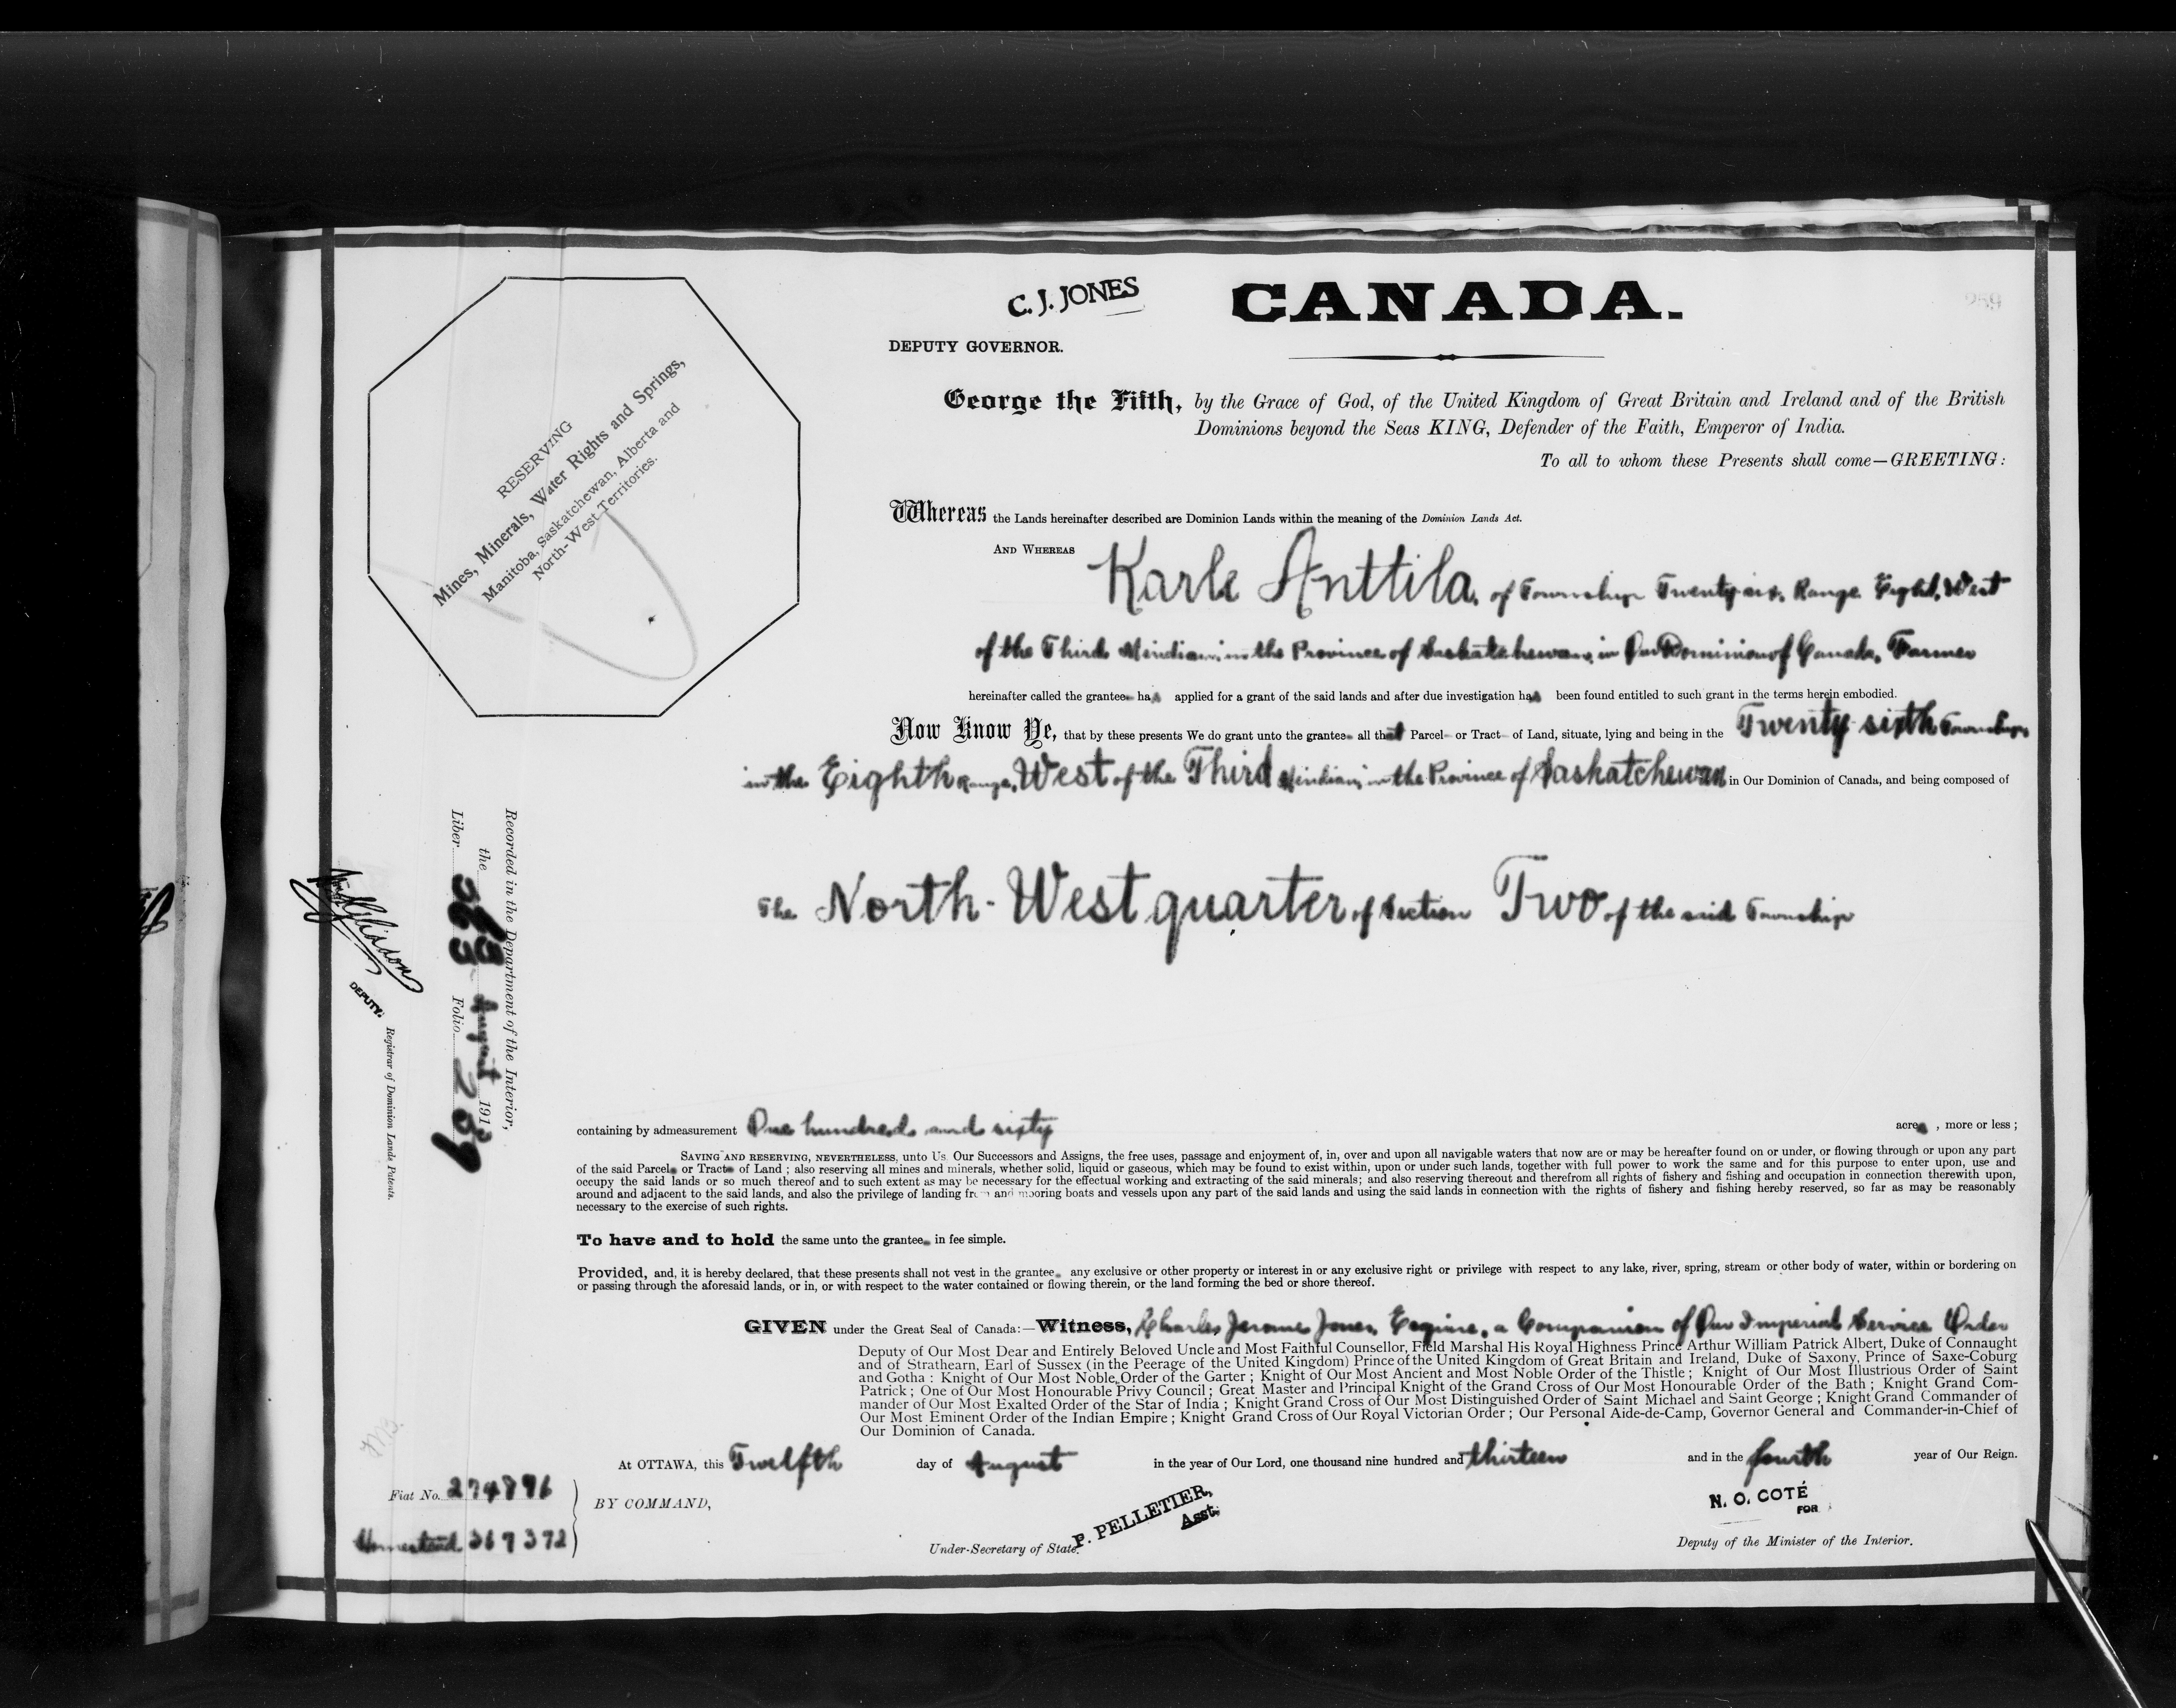 C. J. JONES
CANADA.
259
DEPUTY GOVERNOR.
RESERVING
Mines, Minerals, Water Rights and Springs,
Manitoba, Saskatchewan, Alberta and
North-West Territories.
George the Fifth, by the Grace of God, of the United Kingdom of Great Britain and Ireland and of the British
Dominions beyond the Seas KING, Defender of the Faith, Emperor of India.
To all to whom these Presents shall come—GREETING:
Whereas the Lands hereinafter described are Dominion Lands within the meaning of the Dominion Lands Act.
AND WHEREAS Karle Anttila, of Township Twenty-six, Range Eight, West
of the Third Meridian, in the Province of Saskatchewan, in Our Dominion of Canada, Farmer
hereinafter called the grantee has applied for a grant of the said lands and after due investigation has been found entitled to such grant in the terms herein embodied.
Now Know Ye, that by these presents We do grant unto the grantee all that Parcel or Tract of Land, situate, lying and being in the Twenty-sixth Township,
in the Eighth Range, West of the Third Meridian, in the Province of Saskatchewan in Our Dominion of Canada, and being composed of
The North-West quarter of Section Two of the said Township
Recorded in the Department of the Interior,
the August 191
Liber Folio 259
DEPUTY.
Registrar of Dominion Lands Patents.
containing by admeasurement One hundred and sixty acres, more or less;
SAVING AND RESERVING, NEVERTHELESS, unto Us. Our Successors and Assigns, the free uses, passage and enjoyment of, in, over and upon all navigable waters that now are or may be hereafter found on or under, or flowing through or upon any part
of the said Parcel or Tract of Land; also reserving all mines and minerals, whether solid, liquid or gaseous, which may be found to exist within, upon or under such lands, together with full power to work the same and for this purpose to enter upon, use and
occupy the said lands or so much thereof and to such extent as may be necessary for the effectual working and extracting of the said minerals; and also reserving thereout and therefrom all rights of fishery and fishing and occupation in connection therewith upon,
around and adjacent to the said lands, and also the privilege of landing from and mooring boats and vessels upon any part of the said lands and using the said lands in connection with the rights of fishery and fishing hereby reserved, so far as may be reasonably
necessary to the exercise of such rights.
To have and to hold the same unto the grantee in fee simple.
Provided, and, it is hereby declared, that these presents shall not vest in the grantee any exclusive or other property or interest in or any exclusive right or privilege with respect to any lake, river, spring, stream or other body of water, within or bordering on
or passing through the aforesaid lands, or in, or with respect to the water contained or flowing therein, or the land forming the bed or shore thereof.
GIVEN under the Great Seal of Canada:—Witness, Charles Jerome Jones, Esquire, a Companion of Our Imperial Service Order
Deputy of Our Most Dear and Entirely Beloved Uncle and Most Faithful Counsellor, Field Marshal His Royal Highness Prince Arthur William Patrick Albert, Duke of Connaught
and of Strathearn, Earl of Sussex (in the Peerage of the United Kingdom) Prince of the United Kingdom of Great Britain and Ireland, Duke of Saxony, Prince of Saxe-Coburg
and Gotha: Knight of Our Most Noble Order of the Garter; Knight of Our Most Ancient and Most Noble Order of the Thistle; Knight of Our Most Illustrious Order of Saint
Patrick; One of Our Most Honourable Privy Council; Great Master and Principal Knight of the Grand Cross of Our Most Honourable Order of the Bath; Knight Grand Com-
mander of Our Most Exalted Order of the Star of India; Knight Grand Cross of Our Most Distinguished Order of Saint Michael and Saint George; Knight Grand Commander of
Our Most Eminent Order of the Indian Empire; Knight Grand Cross of Our Royal Victorian Order; Our Personal Aide-de-Camp, Governor General and Commander-in-Chief of
Our Dominion of Canada.
At OTTAWA, this Twelfth day of August in the year of Our Lord, one thousand nine hundred and thirteen and in the fourth year of Our Reign.
Fiat No. 274896
Homestead 369392
BY COMMAND,
P. PELLETIER,
Asst.
Under-Secretary of State.
N. O. COTÉ
FOR
Deputy of the Minister of the Interior.